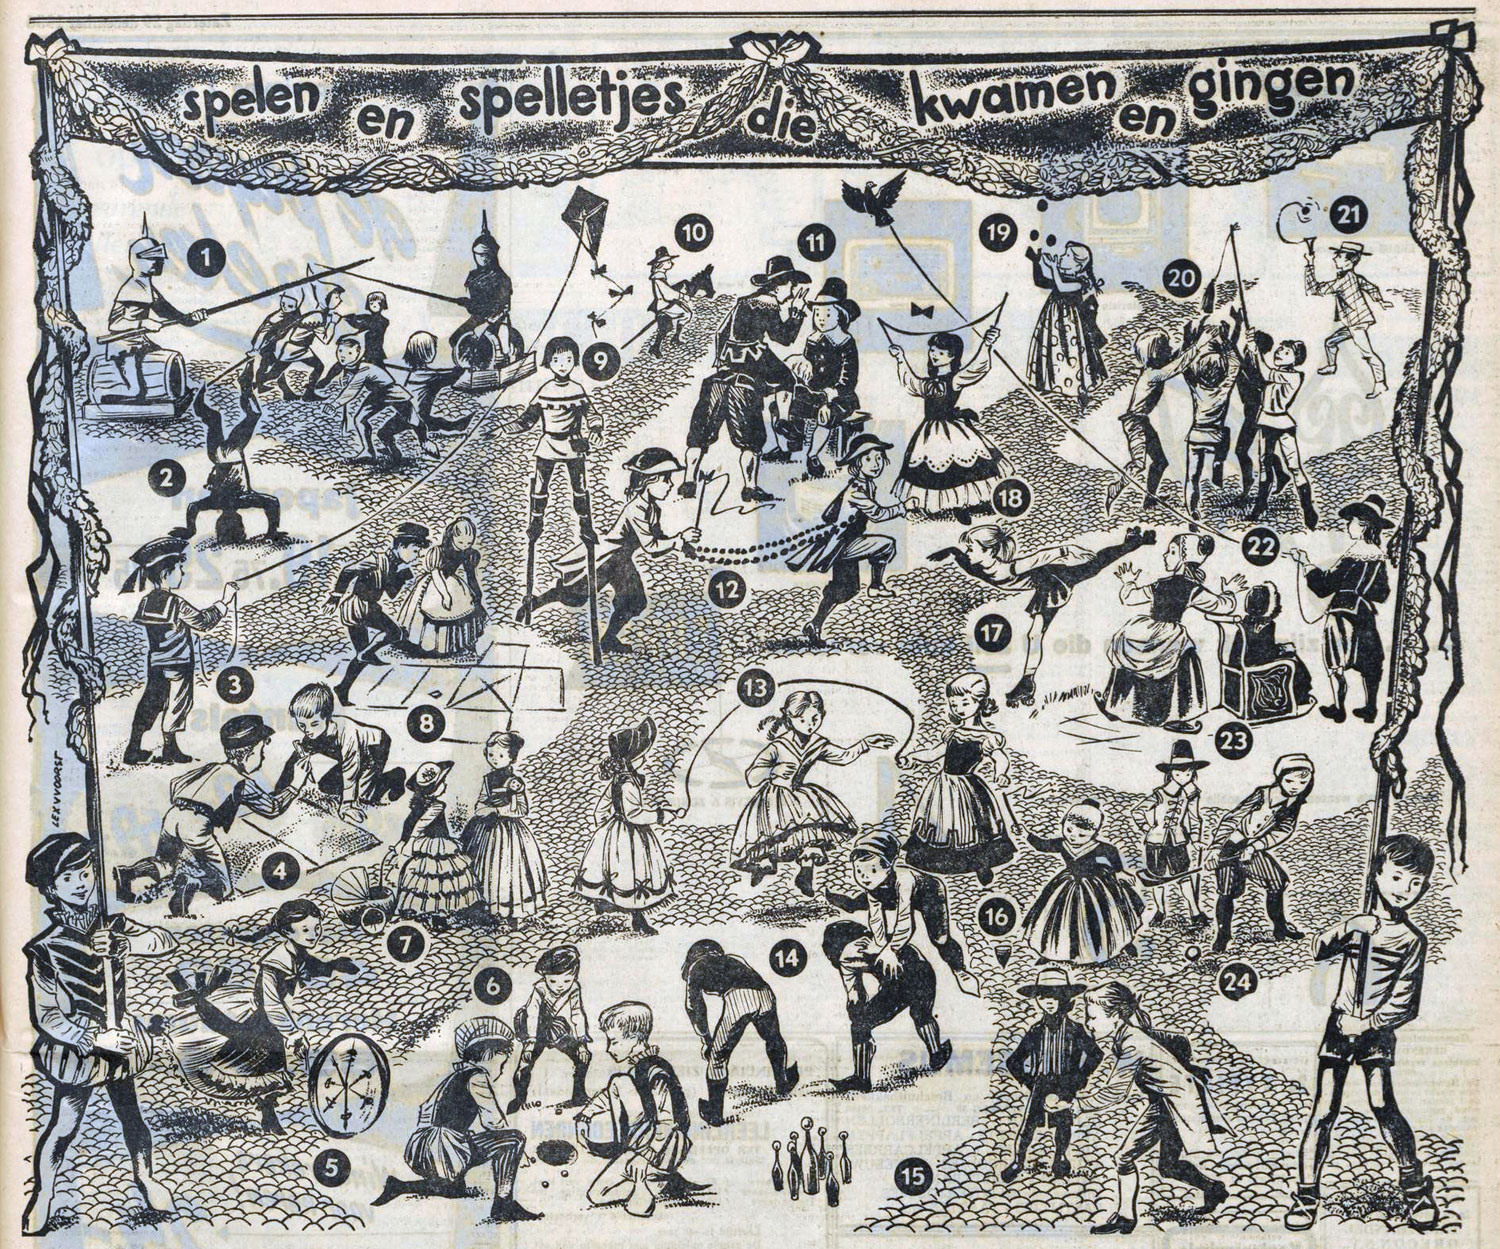 spelen en spelletjes die kwamen en gingen
1
2
3
4
5
6
7
8
9
10
11
12
13
14
15
16
17
18
19
20
21
22
23
24